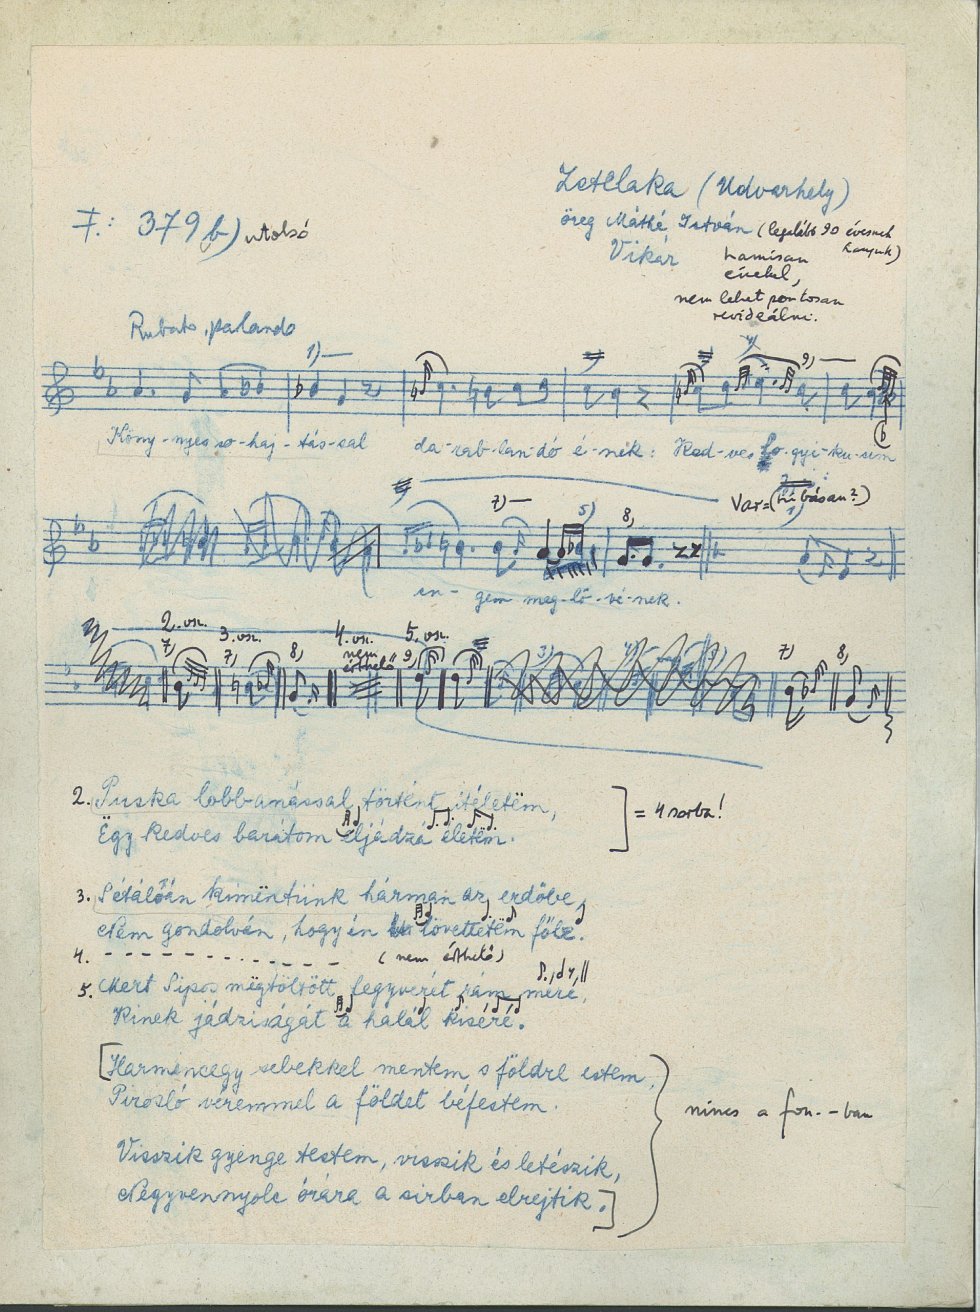 Zetelaka (Udvarhely)
F.: 379 b) utolsó
öreg Máthé István (legalább 90 évesnek
Vikár
hamisan
énekel,
nem lehet pontosan
revideálni.
Rubato, parlando
1)
9)
Köny-nyes so-haj-tás-sal da-rab-lan-dó é-nek: Ked-ves fo-gyi-ku-sim
Var=(hibásan?)
7) 5) 8)
1)
en-gem meg-lö-vé-nek.
2. vsz. 3. vsz. 4. vsz. 5. vsz.
nem
érthető
7) 7) 8) 9) 3) 7) 8)
2. Puska lobbanással történt itéletëm,
Ëgy kedves barátom eljádzá életëm.
= 4 sorba!
3. Sétálóän kimëntünk hárman az erdőbe,
Nem gondolván, hogy én lövettetëm főbe.
4. - - - - - - - - - - (nem érthető)
5. Mert Sipos mëgtöltött fegyverét rám méré,
Kinek jádziságát a halál kiséré.
[Harmincegy sebekkel mentem s földre estem,
Pirosló véremmel a földet béfestem.
nincs a fon.-ban
Visszik gyenge testem, visszik és letészik,
Negyvennyolc órára a sirban elrejtik.]